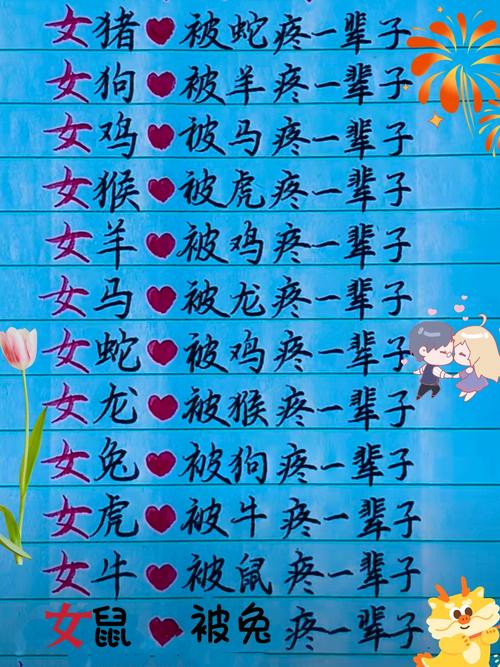 女猪❤被蛇疼一辈子
女狗❤被羊疼一辈子
女鸡❤被马疼一辈子
女猴❤被虎疼一辈子
女羊❤被鸡疼一辈子
女马❤被龙疼一辈子
女蛇❤被鸡疼一辈子
女龙❤被猴疼一辈子
女兔❤被狗疼一辈子
女虎❤被牛疼一辈子
女牛❤被鼠疼一辈子
女鼠❤被兔疼一辈子